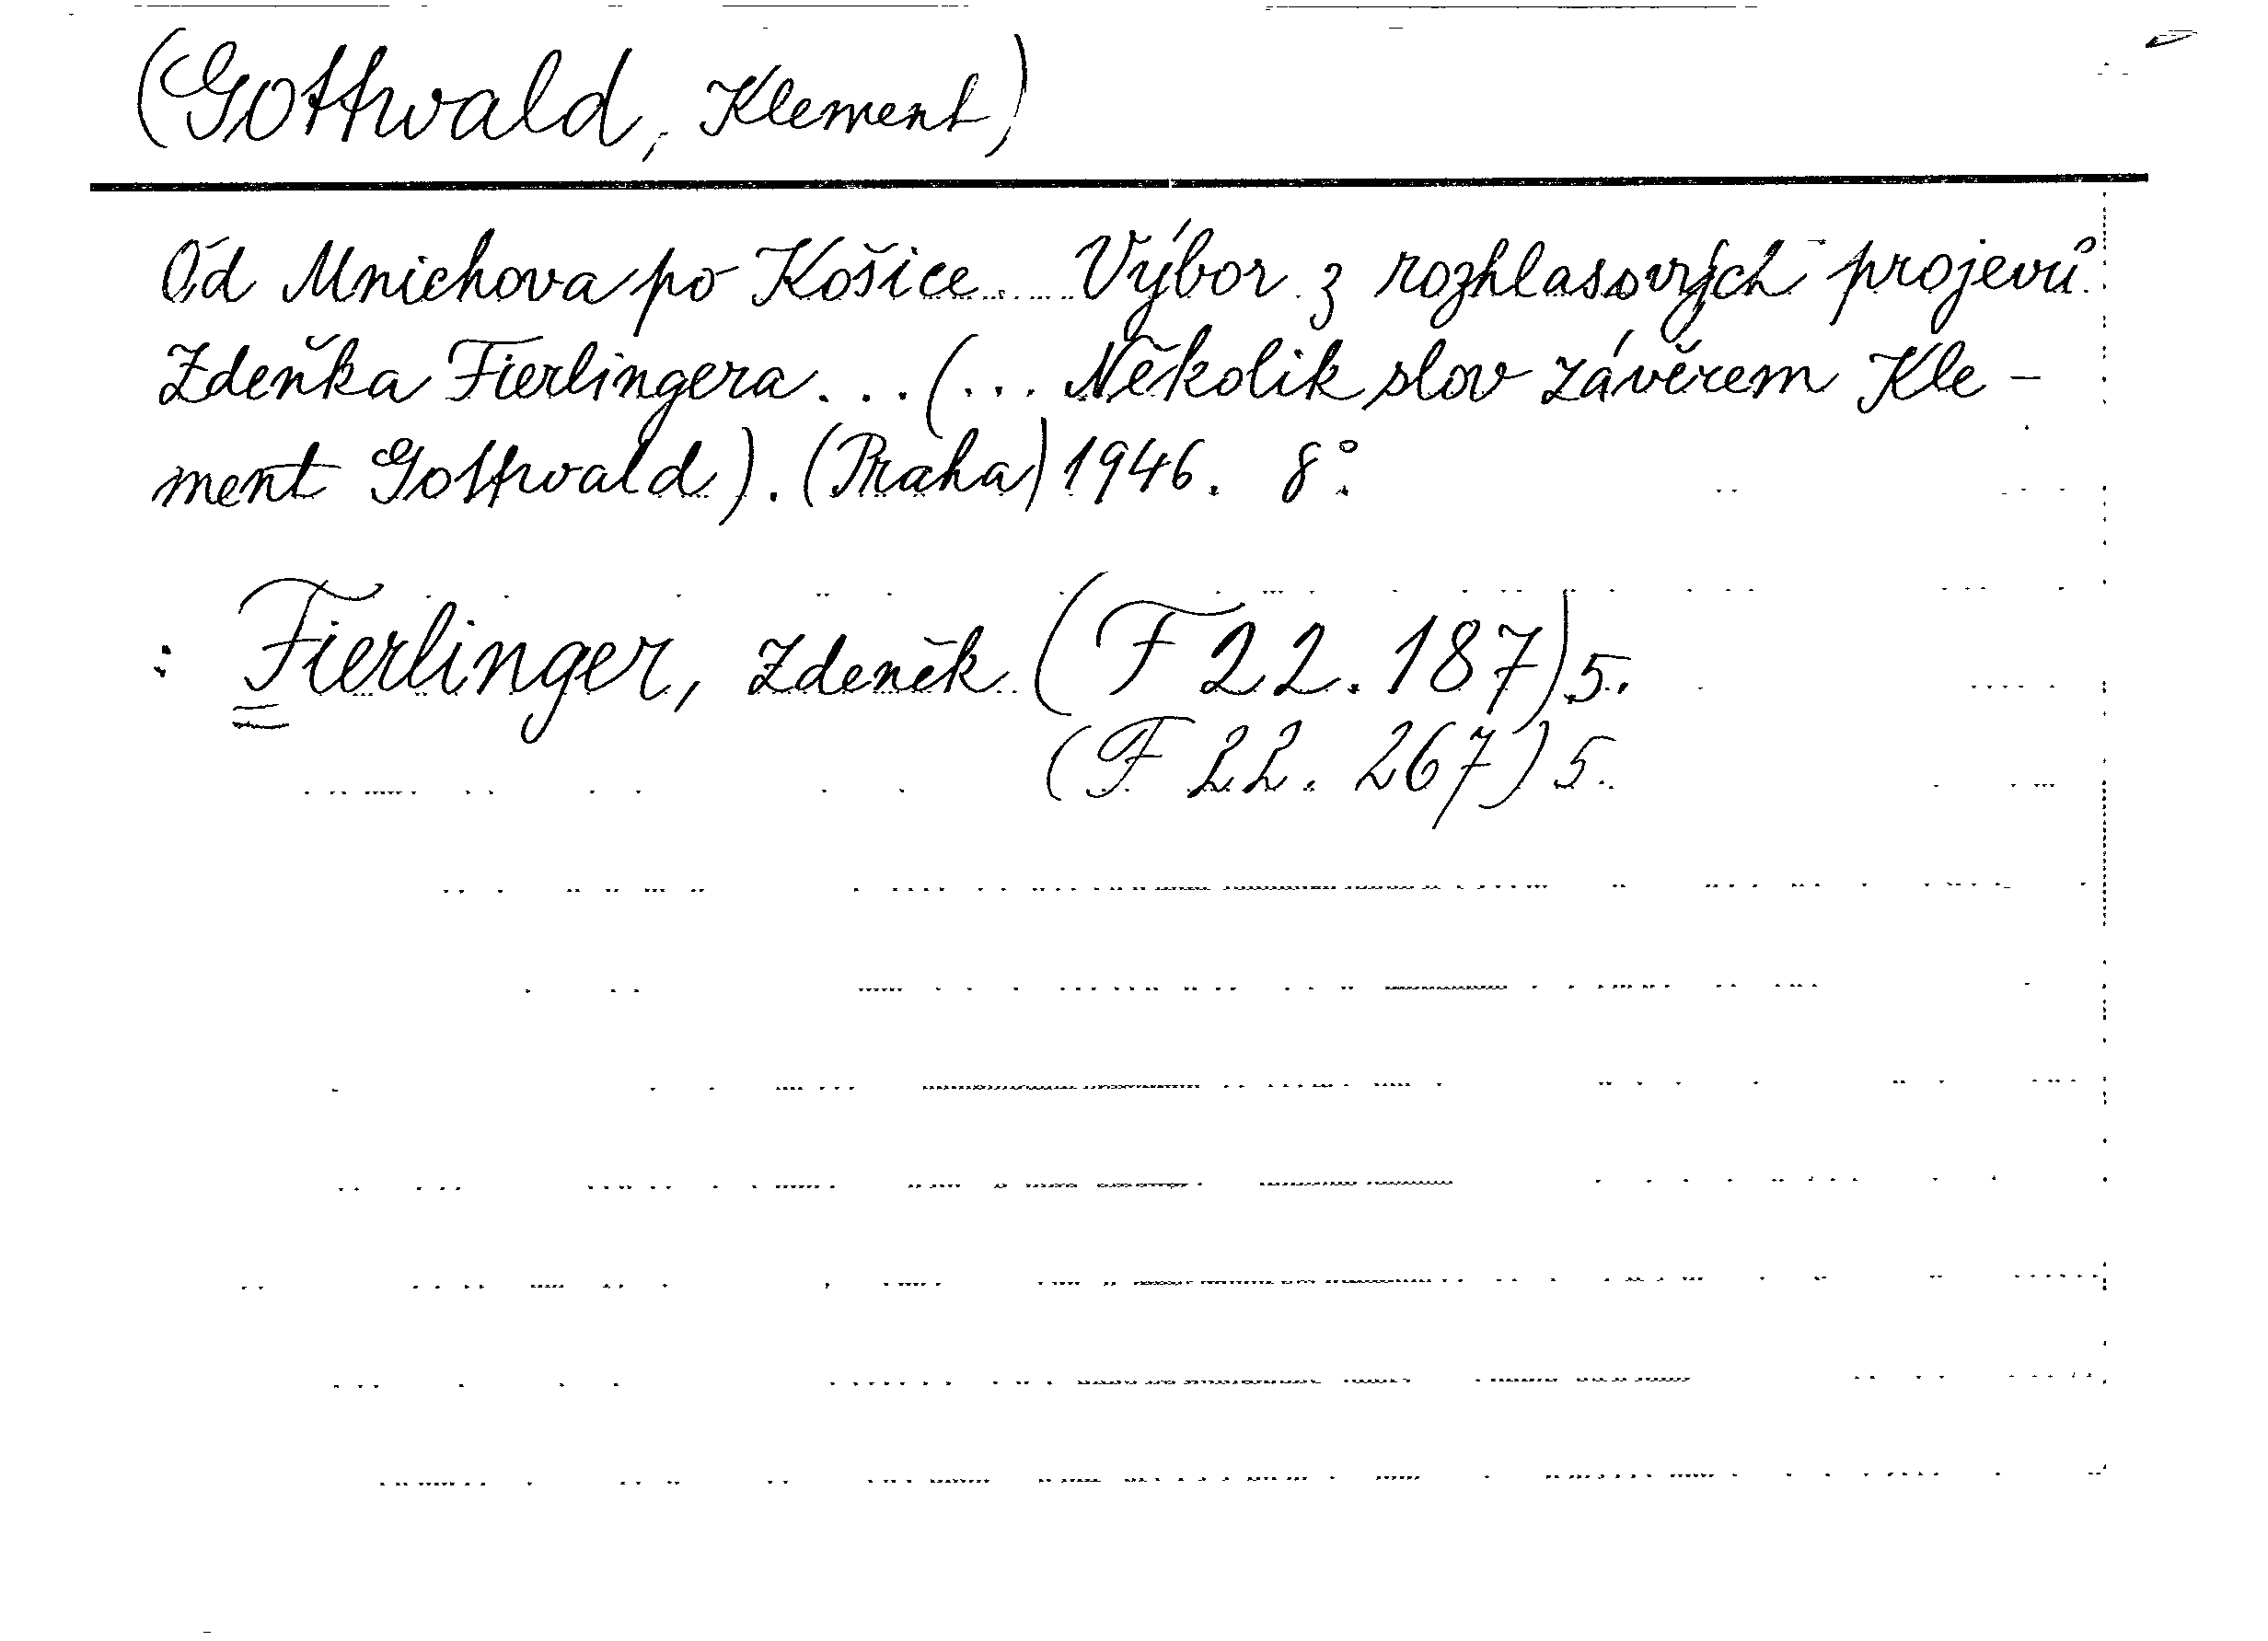 (Gottwald, Klement)
Od Mnichova po Košice... Výbor z rozhlasových projevů
Zdeňka Fierlingera...(... Několik slov závěrem Kle-
ment Gottwald). (Praha) 1946. 8°.
: Fierlinger, Zdeněk (F 22.187)5.
(F 22.267)5.